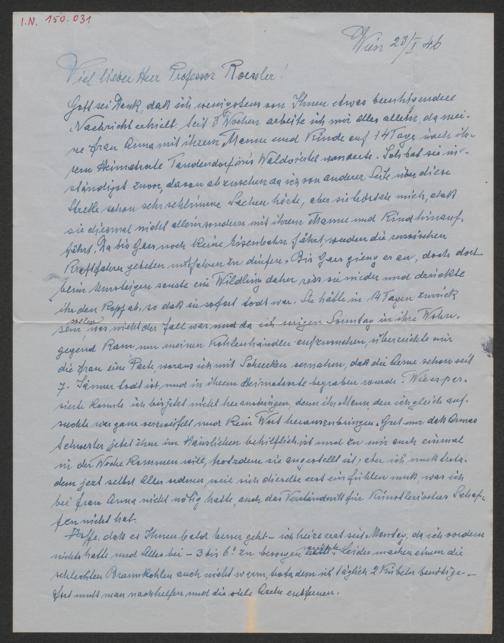 I.N. 150.031
Wien 23/I 46
Viel lieber Herr Professor Roessler!
Gott sei Dank, daß ich wenigstens von Ihnen etwas beruhigendere
Nachricht erhielt. Seit 3 Wochen arbeite ich mir alles allein da mei-
ne Frau Anna mit ihrem Manne und Kinde auf 14 Tage nach ih-
rem Heimatorte Waldviertel wanderte. Ich bat sie in-
ständigst zuvor, davon abzusehen da ich von anderer Seite über diese
Strecke schon sehr schlimme Sachen hörte, aber sie tröstete mich, daß
sie diesmal nicht allein sondern mit ihrem Manne und Kind hinauf-
fährt. Da bis Gars noch keine Eisenbahn fährt, wurden die russischen
Kraftfahrer gebeten mitfahren zu dürfen. Bis Gars gieng es an, doch dort
beim Umsteigen sauste ein Wildling daher, riss sie nieder und drückte
ihr den Kopf ab, so daß sie sofort todt war. Sie hätte in 14 Tagen zurück
sein sollen, was nicht der Fall war und da ich vorigen Sonntag in ihre Wohn-
gegend kam, um meinen Kohlenhändler aufzusuchen, überreichte mir
die Frau ein woraus ich mit Schrecken vernahm, daß die Arme schon seit
7. Jänner todt ist, und in ihrem Heimatorte begraben wurde. Wie es per-
sierte konnte ich bis jetzt nicht herausbringen, denn ihr Mann den ich gleich auf-
suchte war ganz verzweifelt und kein Wort herauszubringen. Gut nur daß Annas
Schwester jetzt ihm im Häuslichen behilflich ist und zu mir auch einmal
in der Woche kommen will, trotzdem sie angestellt ist; aber ich muß trotz-
dem jezt selbst Alles ordnen, weil ich dieselbe erst einführen muß was ich
bei Frau Anna nicht nötig hatte, auch das Verständniß für Künstlerisches Schaf-
fen nicht hat.
Hoffe, daß es Ihnen bald besser geht – ich heize erst seit Montag, da ich vordem
nichts hatte und Alles bei – 3 bis 6° zu besorgen leider machen einem die
schlechten Braunkohlen auch nicht warm, trotzdem ich täglich 2 Kübeln benötige –
fort muß man nachhelfen und die viele Asche entfernen.